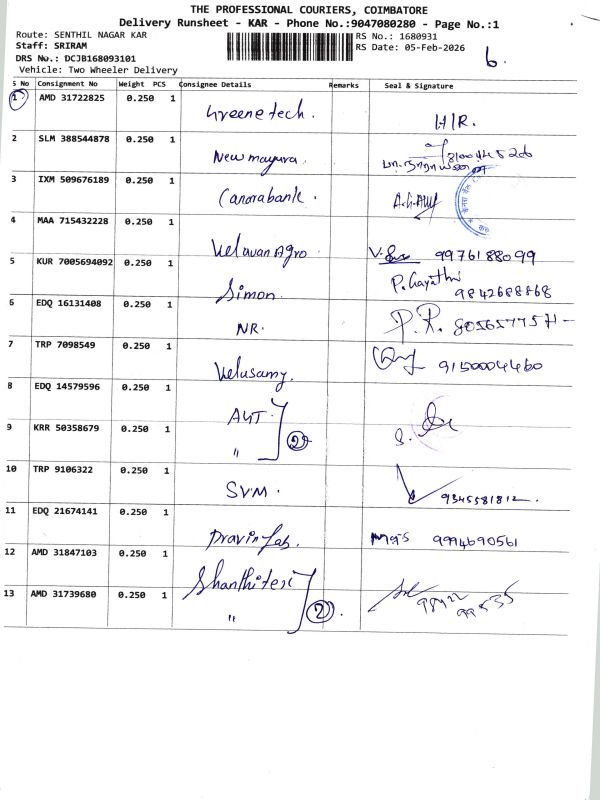 THE PROFESSIONAL COURIERS, COIMBATORE
Delivery Runsheet - KAR - Phone No.:9047080280 - Page No.:1
Route: SENTHIL NAGAR KAR
RS No.: 1680931
Staff: SRIRAM
RS Date: 05-Feb-2026
6.
DRS No.: DCJB168093101
Vehicle: Two Wheeler Delivery
S No Consignment No Weight PCS Consignee Details Remarks Seal & Signature
1 AMD 31722825 0.250 1 Greenetech. H/R.
2 SLM 388544878 0.250 1 New mayura
3 IXM 509676189 0.250 1 Canarabank.
4 MAA 715432228 0.250 1 Velavan Agro 9976188099
5 KUR 7005694092 0.250 1 Simon. P. Gayathri 9842688868
6 EDQ 16131408 0.250 1 NR. P. R. 8056577571-
7 TRP 7098549 0.250 1 Velusamy. 9150004460
8 EDQ 14579596 0.250 1
9 KRR 50358679 0.250 1 " 2
10 TRP 9106322 0.250 1 SVM. 9345581812.
11 EDQ 21674141 0.250 1 Pravin Lab. 9994690561
12 AMD 31847103 0.250 1 Shanthitex
13 AMD 31739680 0.250 1 " 2.